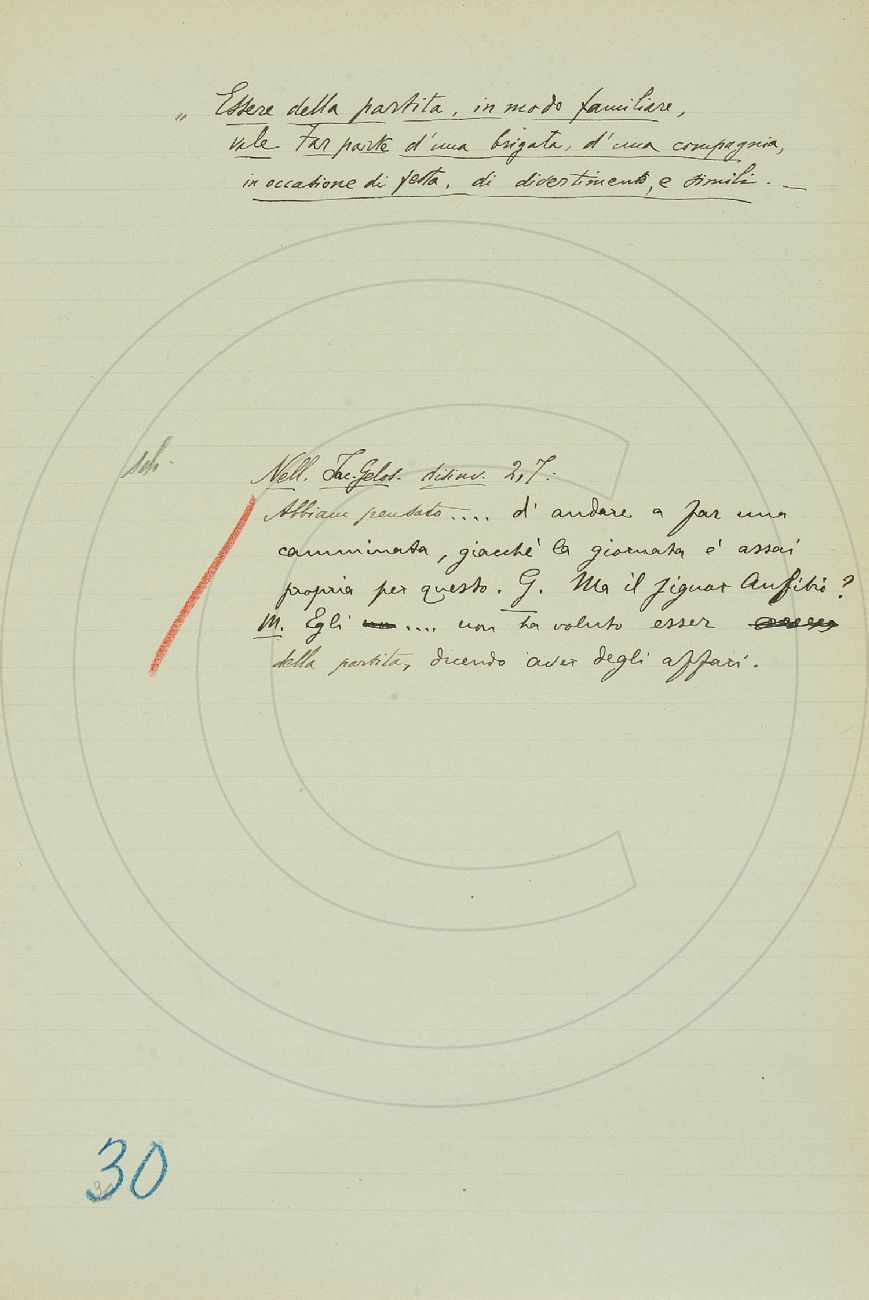 „ Essere della partita, in modo familiare,
vale Far parte d'una brigata, d'una compagnia,
in occasione di festa, di divertimento, e simili. —
sch.
Nell. Iac. Gelos. disinv. 2, 7:
Abbiam pensato .... d'andare a far una
camminata, giacchè la giornata è assai
propria per questo. G. Ma il signor Anfibio?
M. Egli .... non ha voluto esser
della partita, dicendo aver degli affari.
30
30